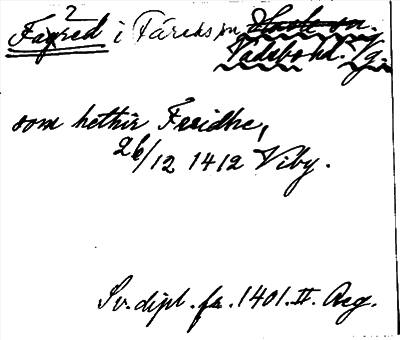 ?
Fagred i Färeks sn
Vadsbo hd. Vg.
som hethir Freidhe,
26/12 1412 Viby.
Sv. dipl. fr. 1401. II. Reg.